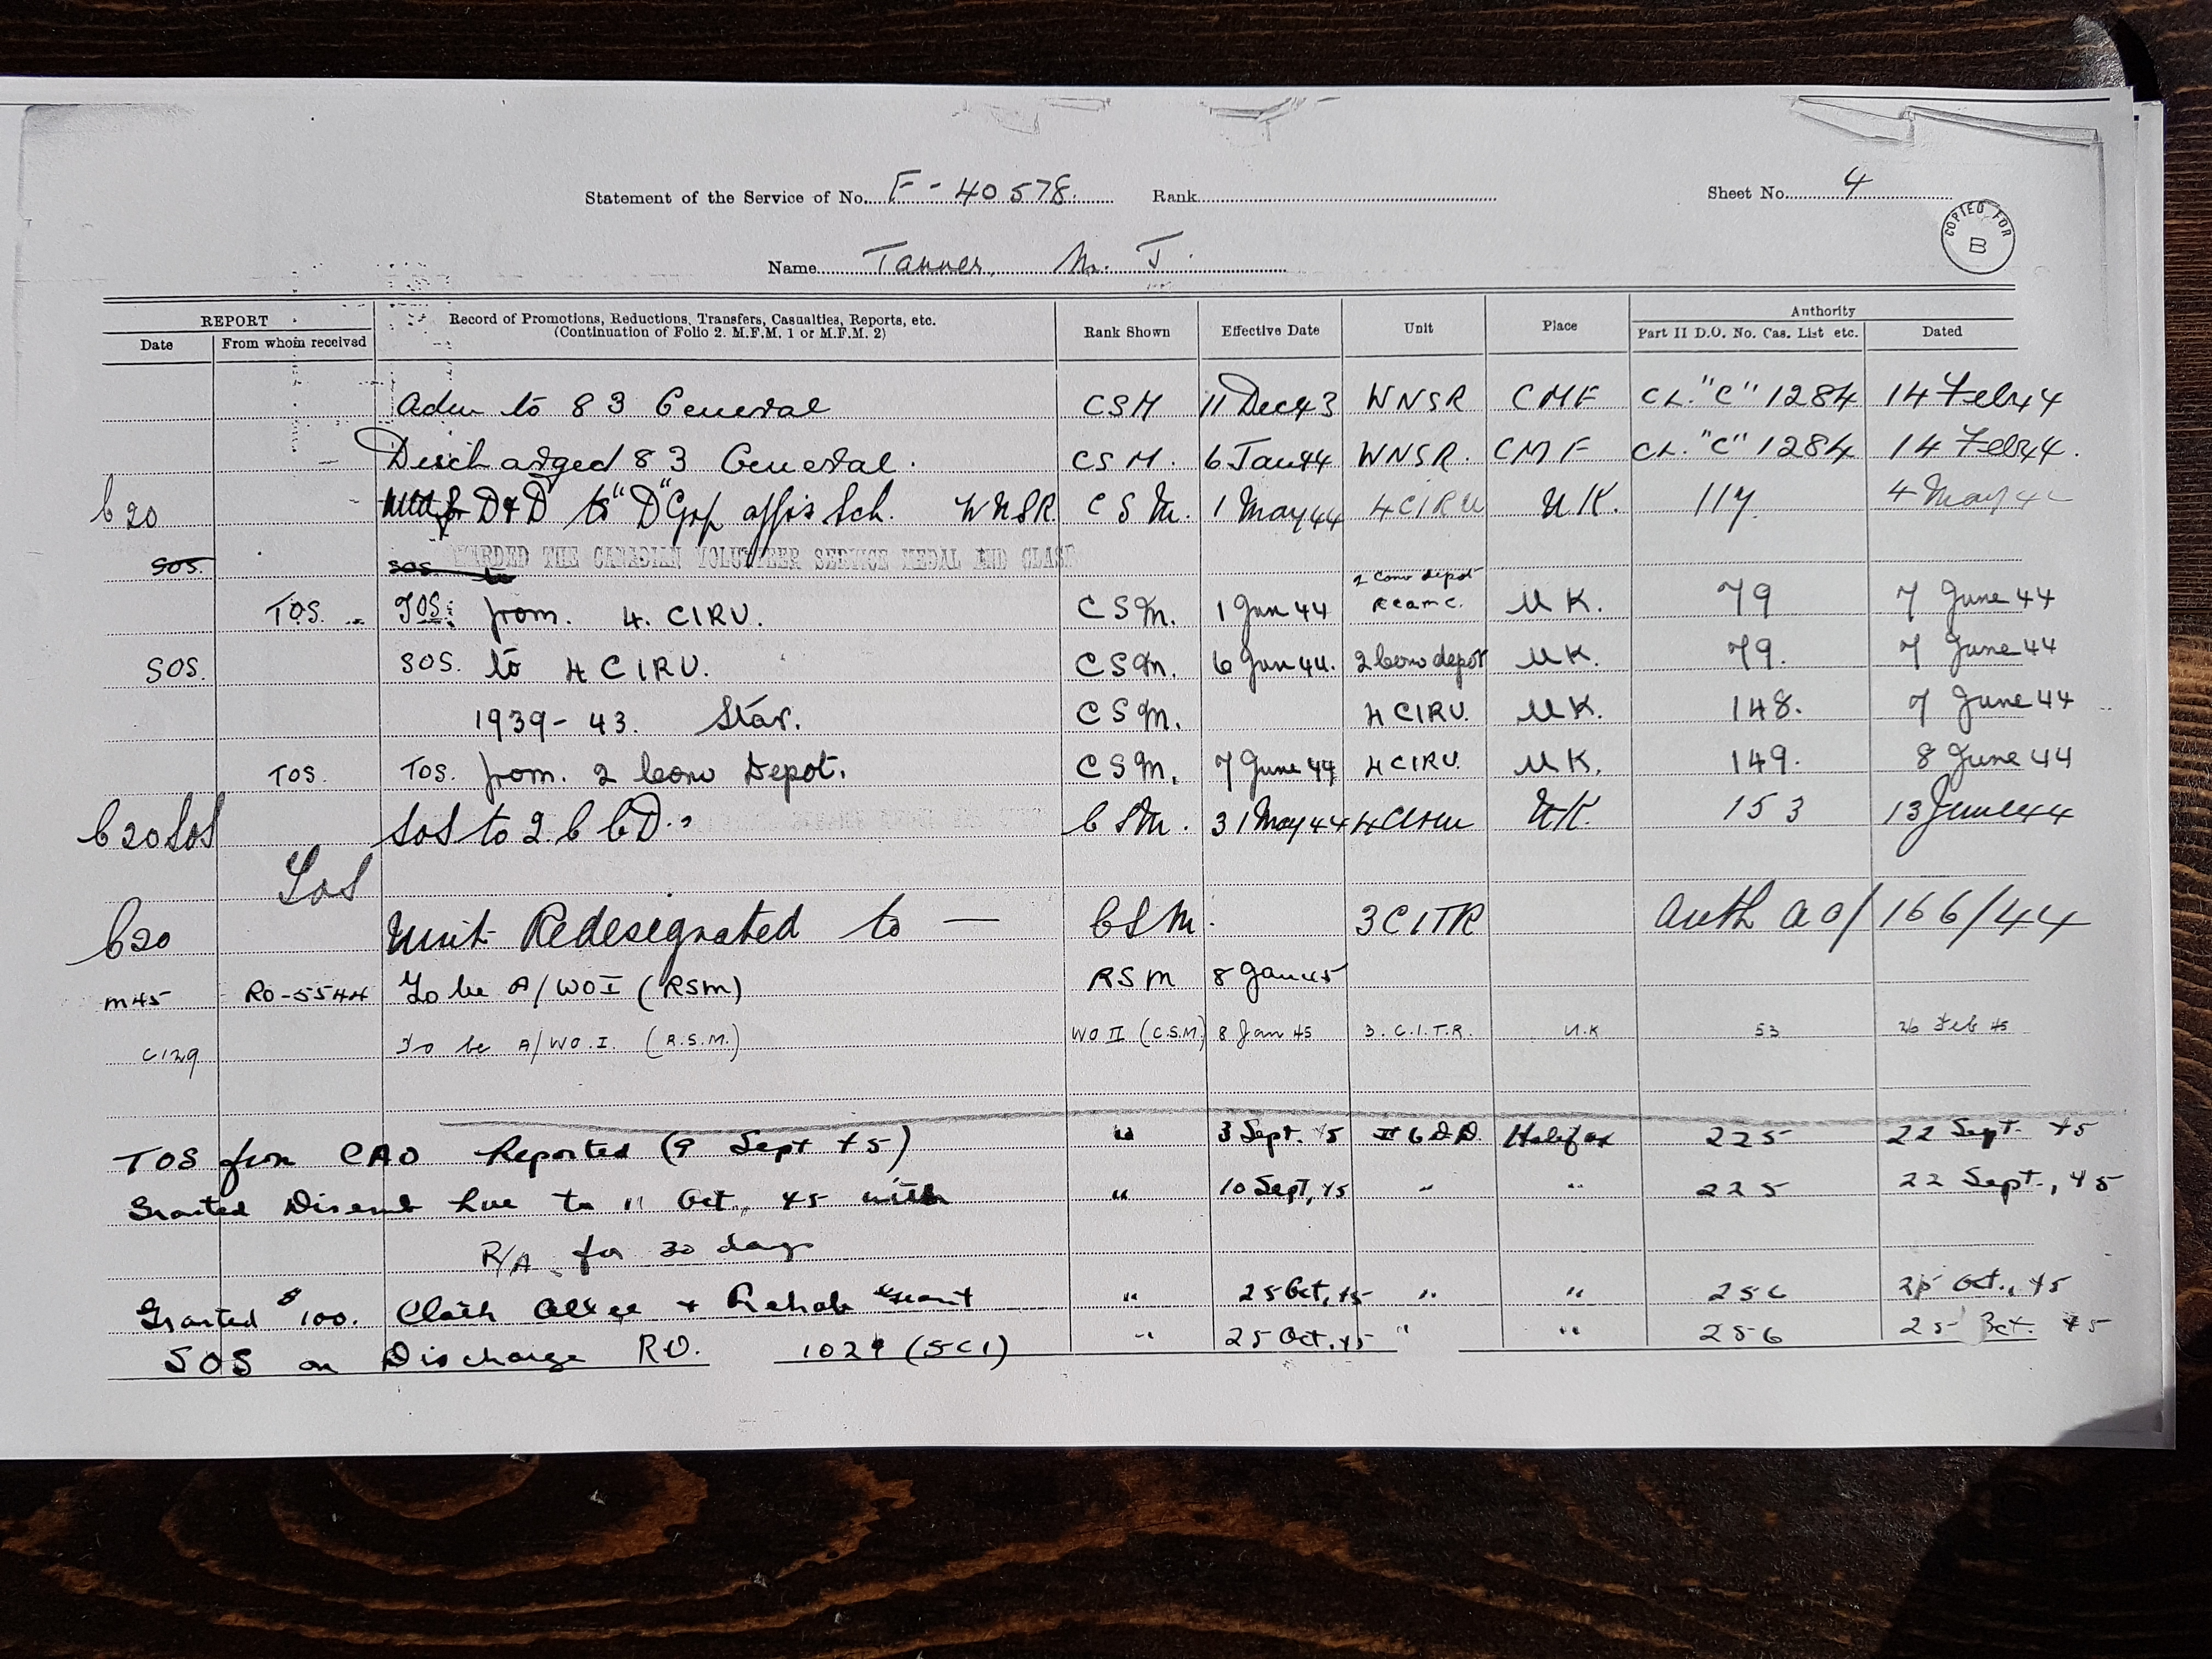 Statement of the Service of No. F-40578. Rank Sheet No. 4
COPIED FOR B
Name Tanner, M. J.
REPORT Record of Promotions, Reductions, Transfers, Casualties, Reports, etc. Rank Shown Effective Date Unit Place Authority
Date From whom received (Continuation of Folio 2. M.F.M. 1 or M.F.M. 2) Part II D.O. No. Cas. List etc. Dated
Adm to 83 General CSM 11 Dec 43 WNSR CMF CL. "C" 1284 14 Feb 44
Discharged 83 General. CSM. 6 Jan 44 WNSR. CMF CL. "C" 1284 14 Feb 44.
C20 D & D to "D" Grp Sch. WNSR CSM. 1 May 44 4 CIRU U.K. 117. 4 May
SOS. SOS to AWARDED THE CANADIAN VOLUNTEER SERVICE MEDAL AND CLASP
2 Conv depot
TOS. TOS: from. 4. CIRU. CSM. 1 Jun 44 RCAMC. UK. 79 7 June 44
SOS. SOS. to 4 CIRU. CSM. 6 Jun 44. 2 Conv depot UK. 79. 7 June 44
1939-43. Star. CSM. 4 CIRU. UK. 148. 7 June 44
TOS. TOS. from. 2 Conv Depot. CSM. 7 June 44 4 CIRU. UK. 149. 8 June 44
C20 SOS SOS to 2. C C D. CSM. 31 May 44 4 CIRU UK. 153 13 June 44
SOS
C20 Unit Redesignated to — CSM. 3 CITR Auth AO/166/44
M45 RO-5544 To be A/WO I (RSM) RSM 8 Jan 45
C129 To be A/WO.I. (R.S.M.) WO II (C.S.M.) 8 Jan 45 3. C.I.T.R. U.K 53 26 Feb 45
TOS from CAO Reported (9 Sept 45) " 3 Sept. 45 6 D.D. Halifax 225 22 Sept. 45
Granted Disemb Lve to 11 Oct., 45 with " 10 Sept, 45 " " 225 22 Sept., 45
R/A for 30 days
Granted $100. Cloth Allce + Rehab Grant " 25 Oct, 45 " " 256 25 Oct., 45
SOS on Discharge RO. 1029 (5C1) " 25 Oct. 45 " " 256 25 Oct. 45